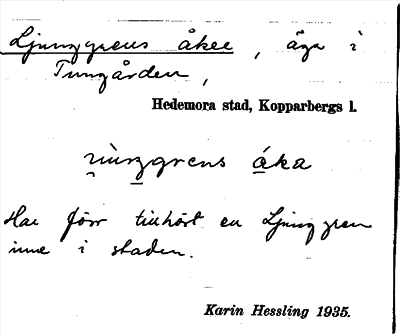 Ljunggrens åker, äga i
Tungården,
Hedemora stad, Kopparbergs l.
áka
Har förr tillhört en Ljunggren
inne i staden.
Karin Hessling 1935.